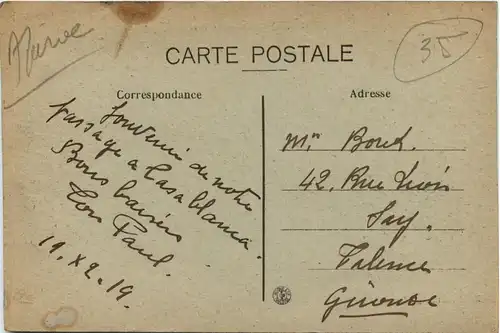 Maroc
35
CARTE POSTALE
Correspondance
Souvenir de notre
passage a Casablanca.
Bons baisers
Ton Paul.
19.X2.19.
Adresse
Mr
42, Rue Léon
Say.
Talence
Gironde